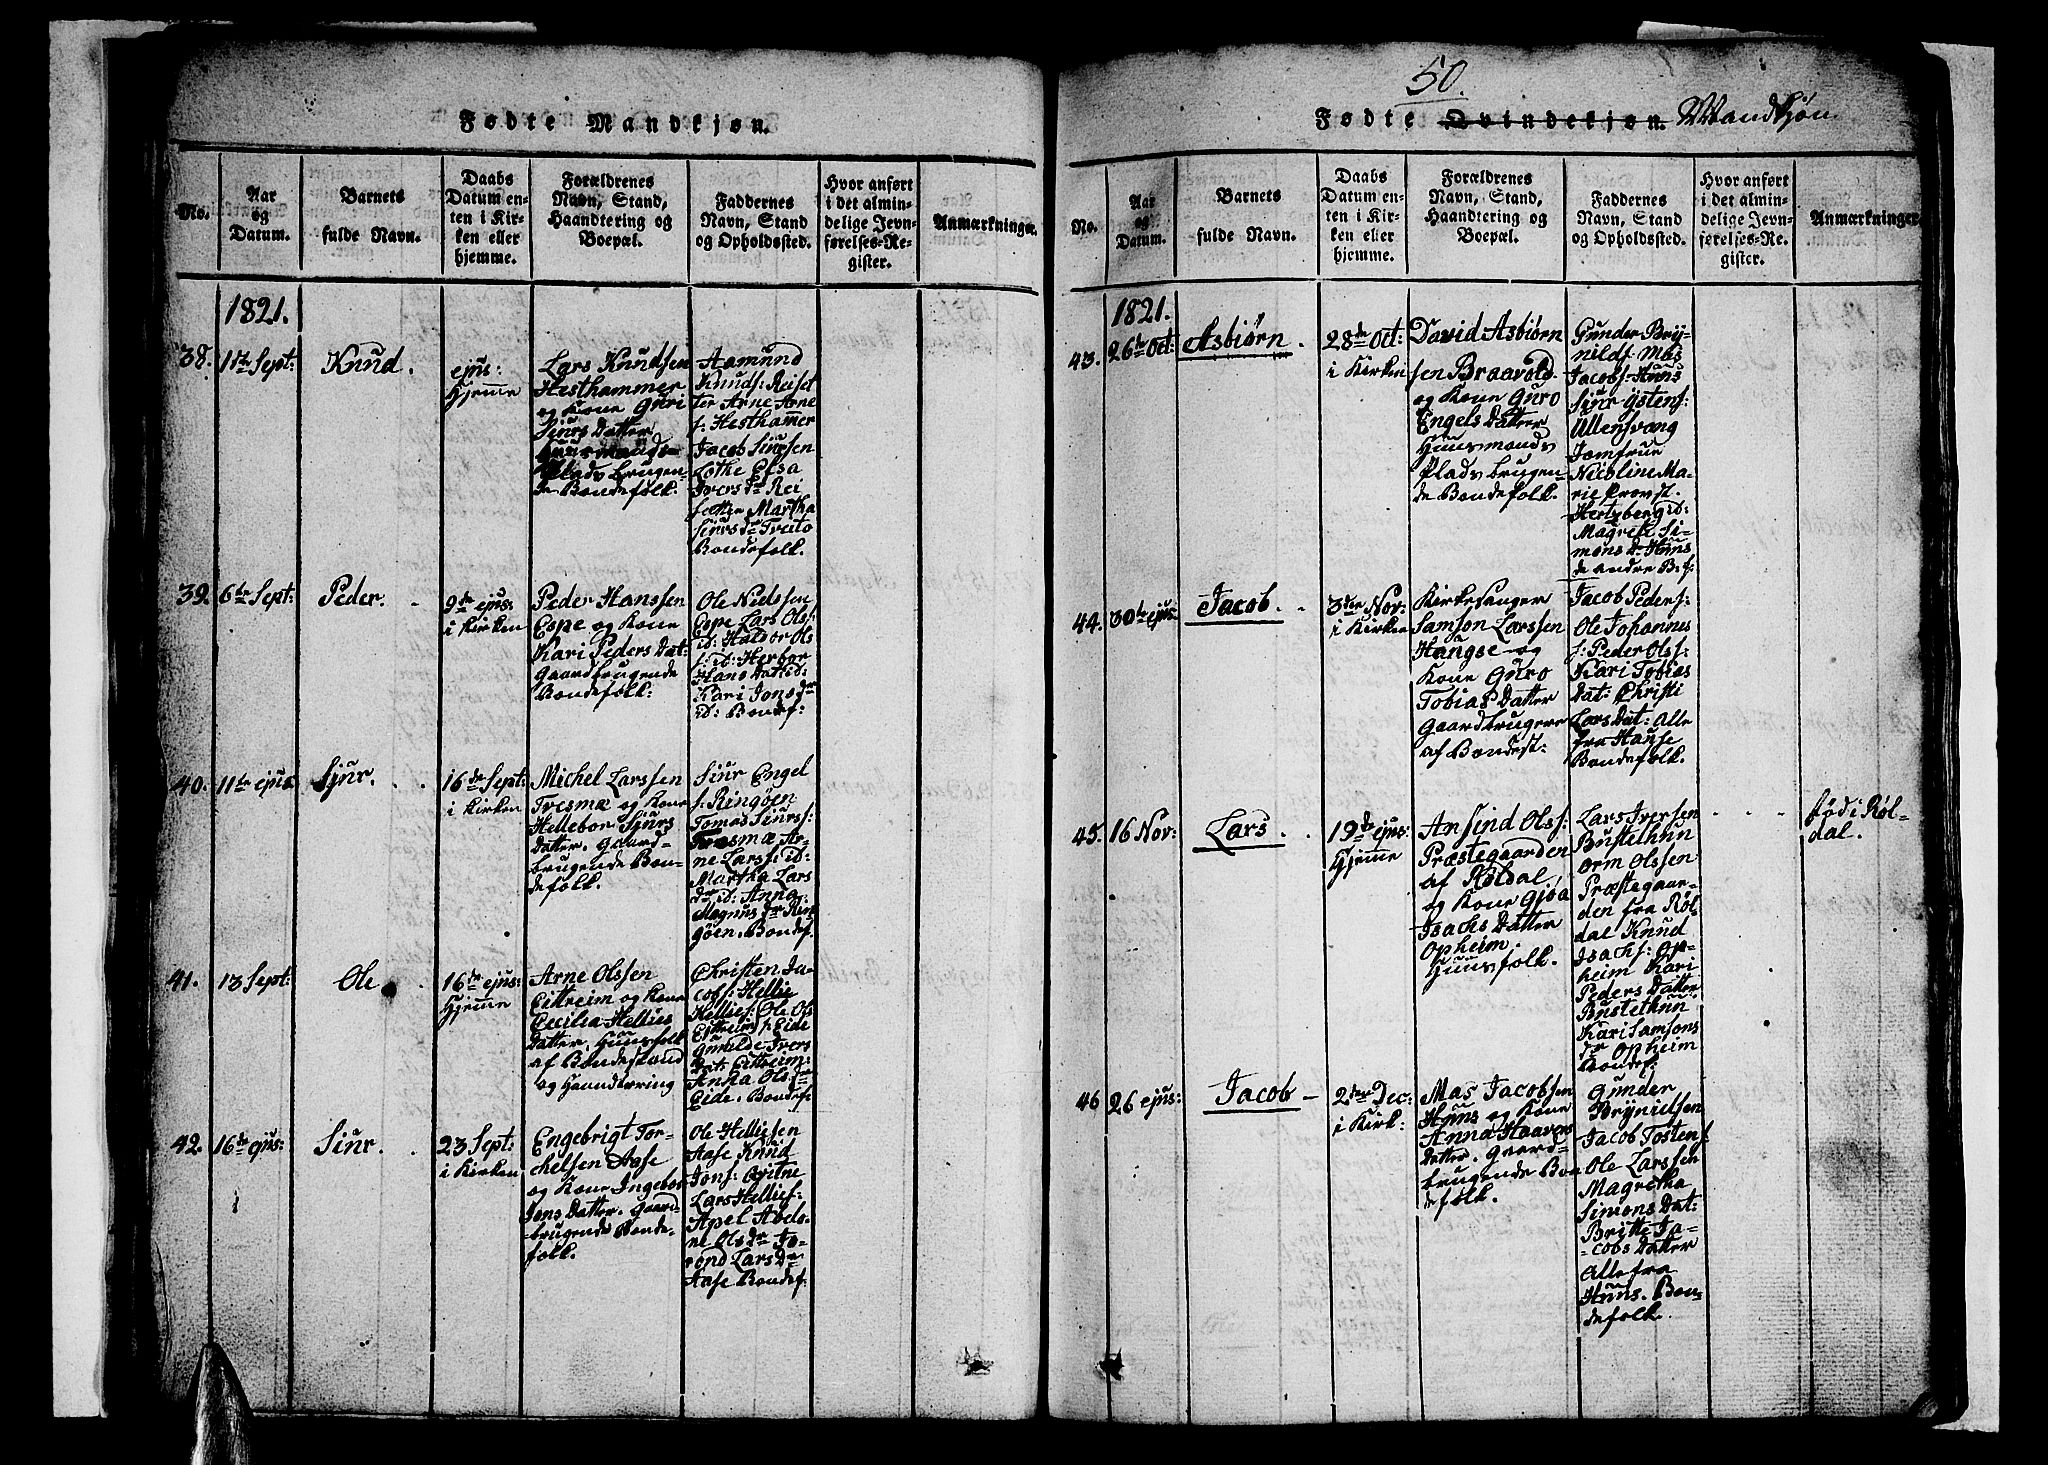 Fødte Mandkjøn.
No.
Aar
og
Datum.
Barnets
fulde Navn.
Daabs
Datum en-
ten i Kir-
ken eller
hjemme.
Forældrenes
Navn, Stand,
Haandtering og
Boepæl.
Faddernes
Navn, Stand
og Opholdssted.
Hvor anført
i det almin-
delige Jevn-
førelses-Re-
gister.
Anmærkninger.
1821.
38.
11te Sept:
Knud.
ejus:
Hjemme
Lars Knudsen
Hesthammer
og Kone Guri
Siurs Datter
Huusmands-
Plads brugen-
de Bondefolk.
Aamund
Knuds: Reiset
ter Arne Arne
s: Hesthammer
Jacob Siursen
Lothe Elsa
Ivers dr Rei
setter Martha
Siurs dr Treito
Bondefolk.
39.
6te Sept:
Peder.
9de ejus:
i Kirken
Peder Hanssen
Espe og Kone
Kari Peders Dat:
Gaardbrugende
Bondefolk:
Ole Nielssen
Espe Lars Ols:
id: Halvor Ols
s: id: Herbor
Hans Dat id:
Kari Jons dr
id: Bondef:
40.
11te ejus
Sjur.
16de Sept:
i Kirken
Michel Larssen
Tresmæ og Kone
Hellebor Sjurs
Datter. Gaard-
brugende Bon-
defolk.
Siur Engel
s: Ringøen
Tomas Siurs:
Tresmæ Ar-
ne Lars: id:
Martha Lars
dr id: Anna
Magnus dr Rin
gøen. Bondef.
41.
13 Sept:
Ole
16de ejus:
Hjemme
Arne Olssen
Eittreim og Kone
Cecilia Hellies
Datter, Huusfolk
af Bondestand
og Haandtæring
Christen Ja-
cobs: Hellie
Hellies: Ole Ols
Eittreim s: Eide
Gunilde Ivers
Dat: Eittreim:
Anna Ols dr
Eide. Bondef:
42.
16de ejus:
Siur.
23 Sept:
i Kirken
Engebrigt Tor-
kelsen Aase
og Kone Ingebor
Jons Datter. Gaard
brugende Bonde-
folk.
Ole Helliesen
Aase Knud
Jons: Opitne
Lars Hellies:
Apel Abelo-
ne Ols dr To-
rond Lars Dr
Aase Bondef:
50.
Fødte Qvindekjøn. Mandkjøn
No.
Aar
og
Datum.
Barnets
fulde Navn.
Daabs
Datum en-
ten i Kir-
ken eller
hjemme.
Forældrenes
Navn, Stand,
Haandtering og
Boepæl.
Faddernes
Navn, Stand
og Opholdssted.
Hvor anført
i det almin-
delige Jevn-
førelses-Re-
gister.
Anmærkninger.
1821.
43.
26de Oct:
Asbiørn
28de Oct:
i Kirken
David Asbiørn
sen Braavold
og Kone Guro
Engels Datter
Huusmands
Plads brugen-
de Bondefolk.
Gunder Bry-
nilds: Mas
Jacobs: Huus
Siur Ystens:
Ullensvang
Jomfrue
Nicoline Ma-
rie Provst.
Hertzberg id:
Magrete Si-
mons dr Huus
de andre B:f:
44.
30te ejus:
Jacob.
3die Nov:
i Kirken
Kirkesanger
Samson Larssen
Hangse og
Kone Guro
Tobias Datter
Gaardbrugere
af Bondest:
Jacob Peders:
Ole Johannes
s: Peder Ols:
Kari Tobias
Dat: Christi
Lars Dat: Alle
fra Hanse
Bondefolk.
45.
16 Nov:
Lars
19de ejus:
Hjemme
Ansind Ols:
Præstegaarden
af Røldal
og Kone Gjøa
Isachs Datter
Opheim.
Huusfolk.
Lars Iversen
Bustethun
Orm Olssen
Præstegaar-
den fra Røl-
dal Knud
Isachs: Op-
heim Kari
Peders Datter
Bustethun
Kari Samsons
dr Opheim
Bondef:
født i Røl-
dal.
46
26 ejus:
Jacob
2den Dec:
i Kirk:
Mas Jacobsen
Huus og Kone
Anna Haavers
Datter. Gaard-
brugende Bon
defolk.
Gunder
Brynielsen
Jacob Tostens:
Ole Larssen
Magretha
Simons Dat:
Britte Ja-
cobs Datter
Alle fra
Huus. Bon-
defolk.